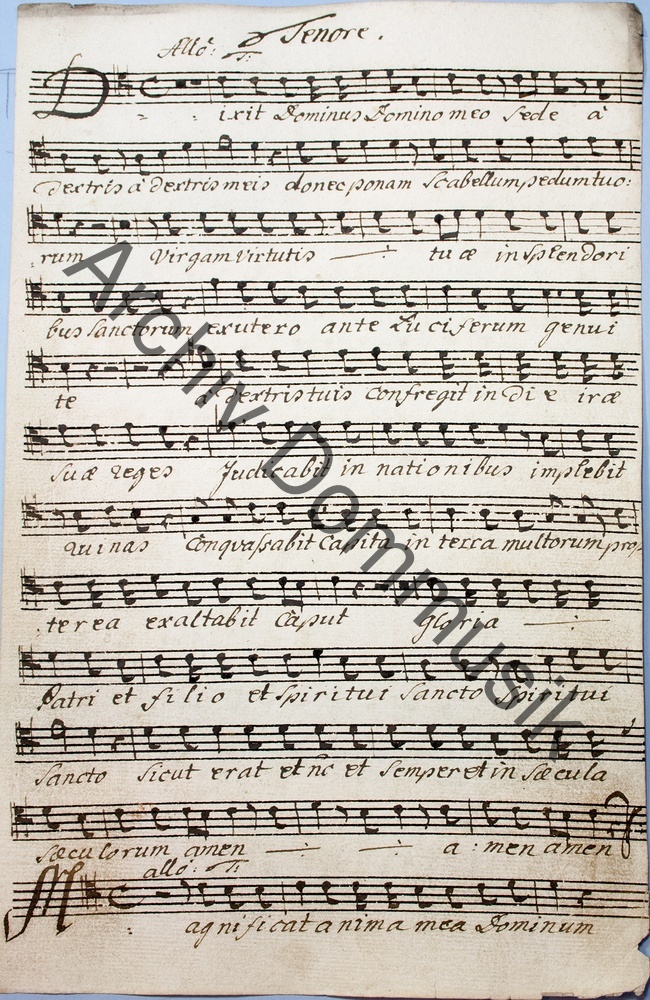 Tenore.
Allo: T:
Dixit Dominus Domino meo Sede à
dextris à dextris meis donec ponam Scabellum pedum tuo:
rum Virgam Virtutis —:— tuæ in Splendori
bus Sanctorum ex utero ante Luciferum genui
te à dextris tuis Confregit in Die iræ
Suæ reges Judicabit in nationibus implebit
ruinas Conquassabit Capita in terra multorum prop
terea exaltabit Caput gloria —:—
Patri et filio et Spiritui Sancto Spiritui
Sancto Sicut erat et nc et Semper et in Sæcula
Sæculorum amen —:— —:— a:men amen
allo: T:
Magnificat anima mea Dominum
Archiv Dommusik